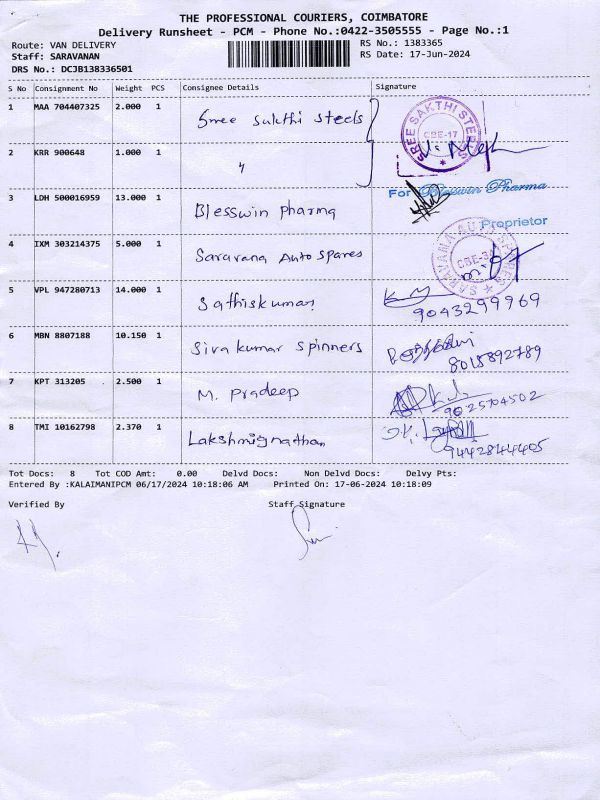 THE PROFESSIONAL COURIERS, COIMBATORE
Delivery Runsheet - PCM - Phone No.:0422-3505555 - Page No.:1
Route: VAN DELIVERY RS No.: 1383365
Staff: SARAVANAN RS Date: 17-Jun-2024
DRS No.: DCJB138336501
S No Consignment No Weight PCS Consignee Details Signature
1 MAA 704407325 2.000 1 Sree Sakthi Steels SREE SAKTHI STEELS CBE-17
2 KRR 900648 1.000 1 "
3 LDH 500016959 13.000 1 Blesswin pharma For Blesswin Pharma
Proprietor
4 IXM 303214375 5.000 1 Saravana Auto spares SARAVANA AUTO SPARES
5 VPL 947280713 14.000 1 Sathiskumar 9043299969
6 MBN 8807188 10.150 1 Sivakumar spinners 8015892789
7 KPT 313205 2.500 1 M. Pradeep 9025704502
8 TMI 10162798 2.370 1 Lakshmignathan 9442844405
Tot Docs: 8 Tot COD Amt: 0.00 Delvd Docs: Non Delvd Docs: Delvy Pts:
Entered By :KALAIMANIPCM 06/17/2024 10:18:06 AM Printed On: 17-06-2024 10:18:09
Verified By Staff Signature